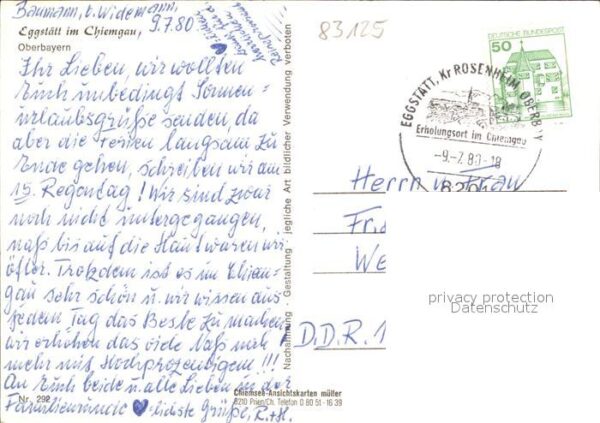 Baumann, b. Widemann,
9.7.80
Eggstätt im Chiemgau,
Oberbayern
Ihr Lieben, wir wollten
Euch unbedingt Sonnen=
urlaubsgrüße senden, da
aber die Ferien langsam zu
Ende gehen, schreiben wir am
15. Regentag! Wir sind zwar
noch nicht untergegangen,
naß bis auf die Haut waren wir
öfter. Trotzdem ist es im Chiem-
gau sehr schön u. wir wissen aus
jedem Tag das Beste zu machen,
wir erhöhen das viele Naß noch
mehr mit Hochprozentigem!!!
An Euch beide u. alle Lieben in der
Familienrunde ♥-lichste Grüße, R.+H.
Nr. 292
Nachahmung - Gestaltung - jegliche Art bildlicher Verwendung verboten
Chiemsee-Ansichtskarten müller
8210 Prien/Ch. Telefon 0 80 51 - 16 39
83125
DEUTSCHE BUNDESPOST
50
EGGSTÄTT, Kr ROSENHEIM, OBERBAY
Erholungsort im Chiemgau
-9.-7.80-18
Herrn u. Frau
Fr.
We
D.D.R. 1
privacy protection
Datenschutz